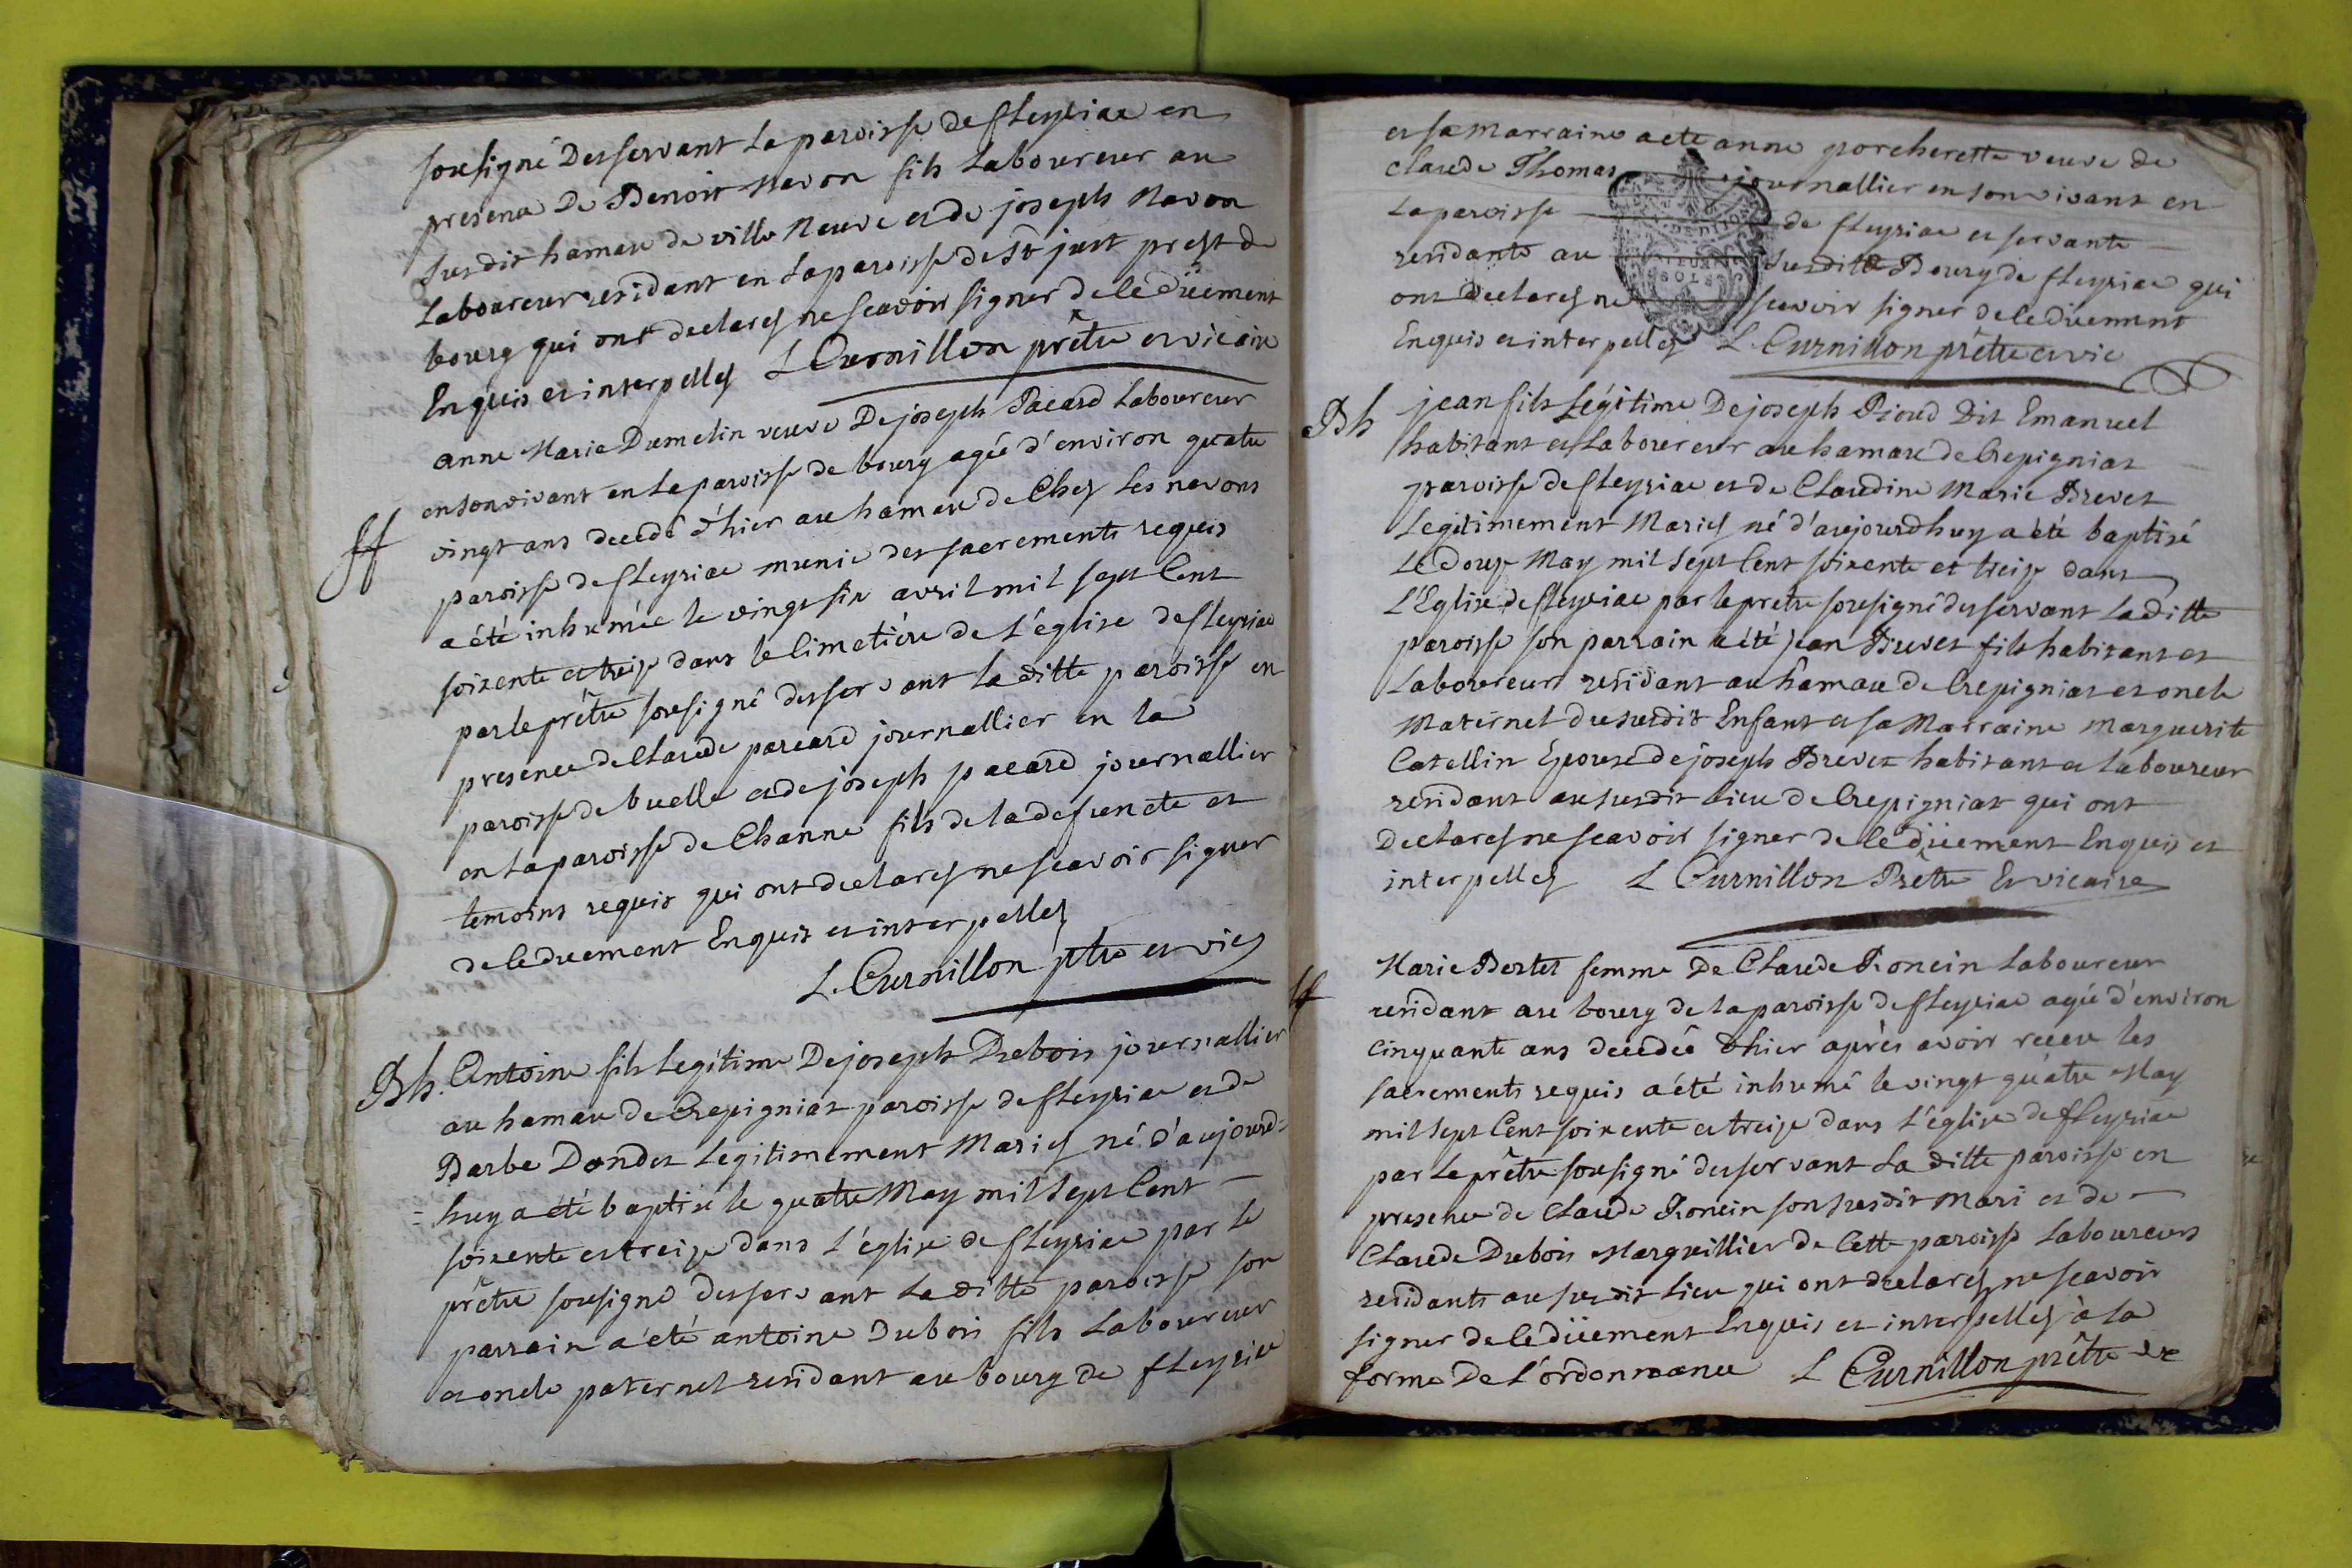 sousigné desservant la paroisse de fleyriac en
presence De Benoit Navon fils Laboureur au
susdit hameau de ville Neuve et de joseph Navon
Laboureur residant en la paroisse de St just prest de
bourg qui ont declarez ne scavoir signer de ce düement
Enquis et interpellez L Curnillon prêtre et vicaire
anne Marie Dumelin veuve De joseph Pacard Laboureur
en son vivant en la paroisse de bourg agée d'environ quatre
ff
vingt ans decedé d'hier au hameau de Chez les navons
paroisse de fleyriac munie des sacrements requis
a été inhumée le vingt six avril mil sept Cent
soixente et treize dans le Cimetiére de L'église de fleyriac
par le prêtre sousigné desservant la ditte paroisse en
presence de Claude pacard journallier en la
paroisse de buelle et de joseph pacard journallier
en la paroisse de Channe fils de la defuncte et
temoins requis qui ont declarez ne scavoir signer
de ce duement Enquis et interpellez
L. Curnillon ptre et vic
Bh. Antoine fils Legitime De joseph Dubois journallier
au hameau de Crepigniat paroisse de fleyriac et de
Barbe Dondet Legitimement Mariez né d'aujourd=
=huy a été baptisé le quatre May mil sept Cent
soixente et treize dans l'église de fleyriac par le
prêtre sousigné desservant la ditte paroisse son
parrain a été antoine Dubois fils Laboureur
et oncle paternel residant au bourg de fleyriac
et sa marraine a ete anne porcherette veuve de
Claude Thomas journallier en son vivant en
la paroisse de fleyriac et servante
residante au susditte Bourg de fleyriac qui
ont declarez ne scavoir signer de ce duement
Enquis et interpellez L. Curnillon prêtre et vic
Bh jean fils Légitime De joseph Pioud Dit Emanuel
habitant et Laboureur au hameau de Crepigniat
paroisse de fleyriac et de Claudine Marie Brevet
Legitimement Mariez né d'aujourdhuy a été baptisé
Le douze May mil sept Cent soixente et treize dans
L'Eglise de fleyriac par le prêtre sousigné desservant La ditte
paroisse son parrain a été jean Brevet fils habitant et
Laboureur residant au hâmeau de Crepigniat et oncle
Maternel du susdit Enfant et sa Marraine Marguerite
Catellin Epouse de joseph Brevet habitant et Laboureur
residant au susdit Lieu de Crepigniat qui ont
Declarez ne scavoir signer de ce düement Enquis et
interpellez L Curnillon Prêtre Et vicaire
ff
Marie Bertet femme De Claude Poncin Laboureur
residant au bourg de la paroisse de fleyriac agée d'environ
Cinquante ans decedée d'hier après avoir receu les
sacrements requis a été inhumé le vingt quatre May
mil sept Cent soixente et treize dans L'église de fleyriac
par Le prêtre sousigné desservant La ditte paroisse en
presence de Claude Poncin son susdit Mari et de
Claude Dubois Marguillier de Cette paroisse Laboureurs
residants au susdit Lieu qui ont declarez ne scavoir
signer de ce düement Enquis et interpellez à la
forme De L'ordonnance L Curnillon prêtre